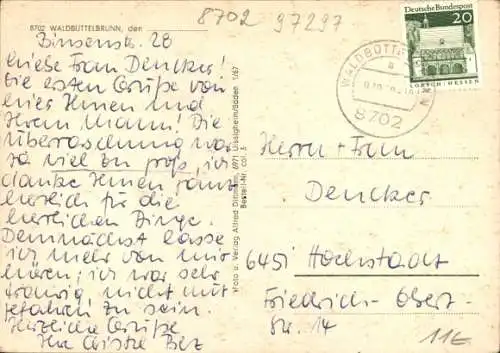 8702 WALDBÜTTELBRUNN, den
8702 97297
Binsenstr. 28
Liebe Frau Dencker!
Die ersten Grüße von
hier Ihnen und
Ihrem Mann! Die
Überraschung war
ja viel zu groß, ich
danke Ihnen ganz
herzlich für die
herrlichen Dinge.
Demnächst lasse
ich mehr von mir
hören; ich war sehr
traurig nicht mit
gefahren zu sein.
Herzliche Grüße
Ihre Christa Betz
Foto u. Verlag Alfred Dittmann, 6971 Uissigheim/Baden 1/67
Bestell-Nr. col. 3
Deutsche Bundespost
20
LORSCH/HESSEN
WALDBÜTTELBRUNN
a
8702
Herrn + Frau
Dencker
6451 Hochstadt
Friedrich-Ebert-
Str. 14
11E